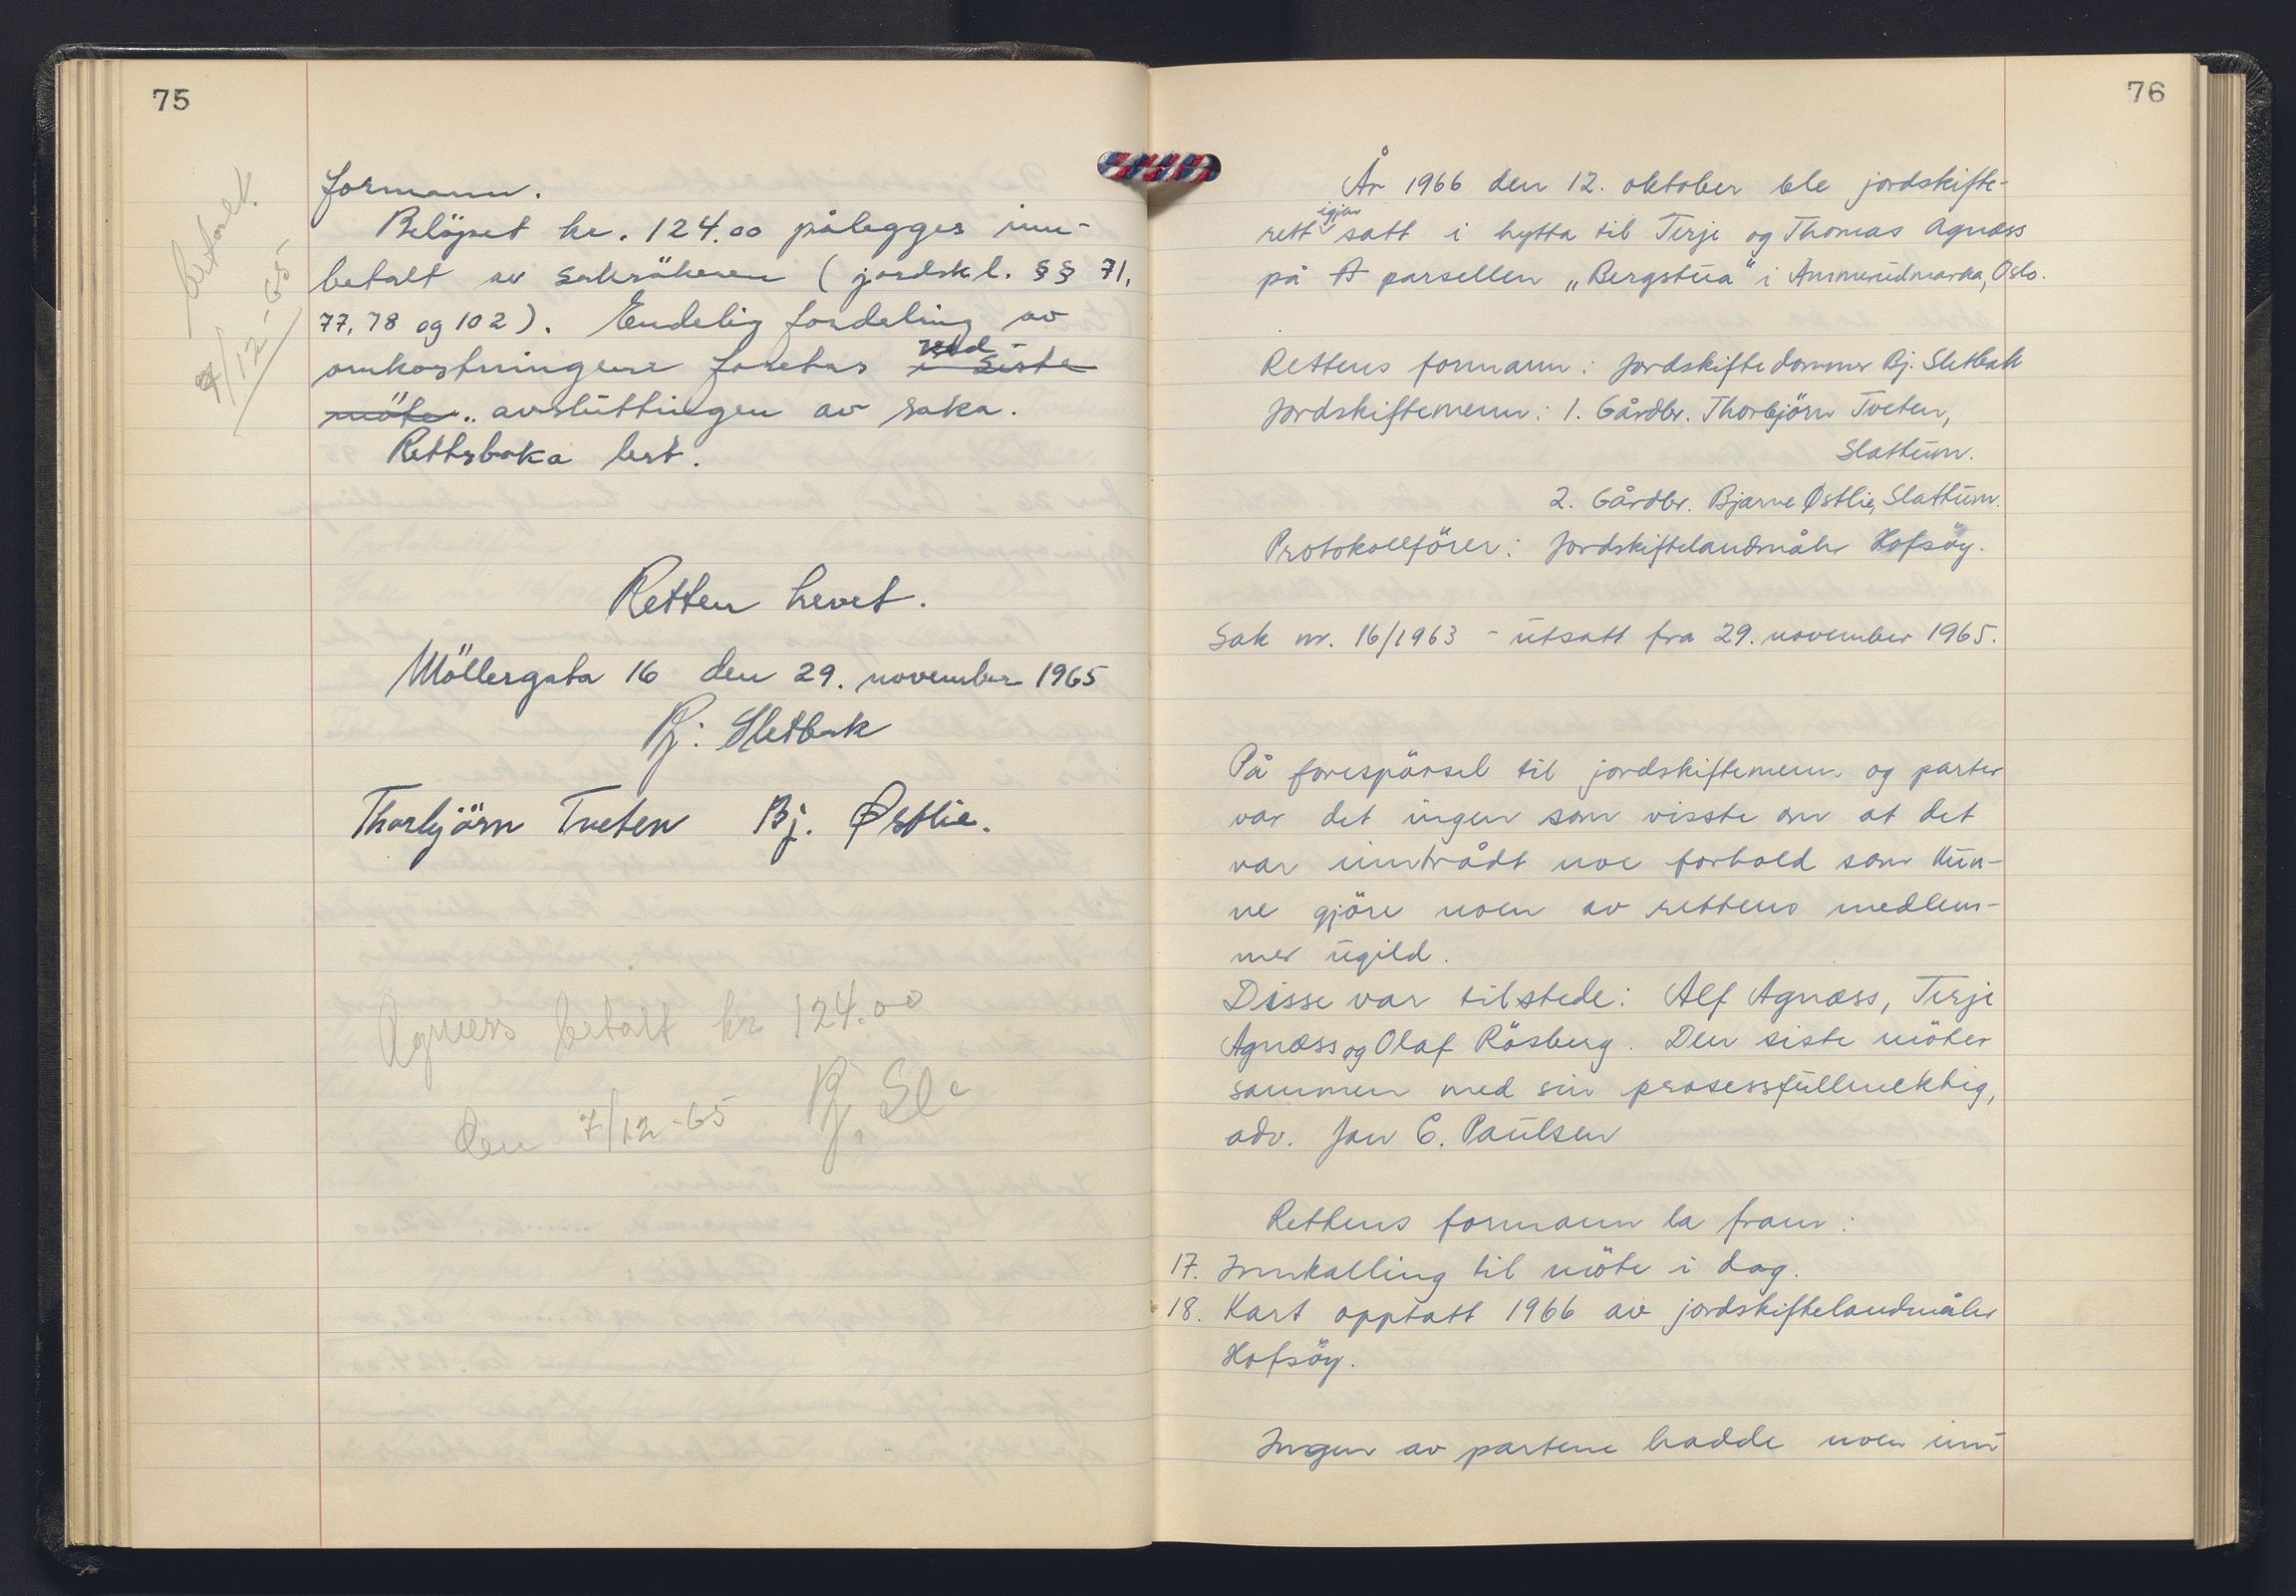 75
betalt
7/12-65
formann.
Beløpet kr. 124.00 pålegges inn-
betalt av saksökeren (jordsk.l. §§ 71,
77, 78 og 102). Endelig fordeling av
omkostningene foretas i siste ved
möte.. avslutningen av saka.
Rettsboka lest.
Retten hevet.
Möllergata 16 den 29. november 1965
Bj. Sletbak
Thorbjörn Tveten Bj. Østlie.
Agnæss betalt kr 124.00
den 7/12-65 Bj. Sl
76
År 1966 den 12. oktober ble jordskifte-
rett igjen satt i hytta til Terje og Thomas Agnæss
på A parsellen „Bergstua" i Ammerudmarka, Oslo.
Rettens formann: Jordskiftedommer Bj. Sletbak
Jordskiftemenn: 1. Gårdbr. Thorbjörn Tveten,
Slattum.
2. Gårdbr. Bjarne Østlie, Slattum.
Protokollförer: Jordskiftelandmåler Hofsöy.
Sak nr. 16/1963 - utsatt fra 29. november 1965.
På forespörsel til jordskiftemenn og parter
var det ingen som visste om at det
var inntrådt noe forhold som kun-
ne gjöre noen av rettens medlem-
mer ugild.
Disse var tilstede: Alf Agnæss, Terje
Agnæss og Olaf Räsberg. Den siste möter
sammen med sin prosessfullmektig,
adv. Jan C. Paulsen
Rettens formann la fram:
17. Innkalling til möte i dag.
18. Kart opptatt 1966 av jordskiftelandmåler
Hofsöy.
Ingen av partene hadde noen inn